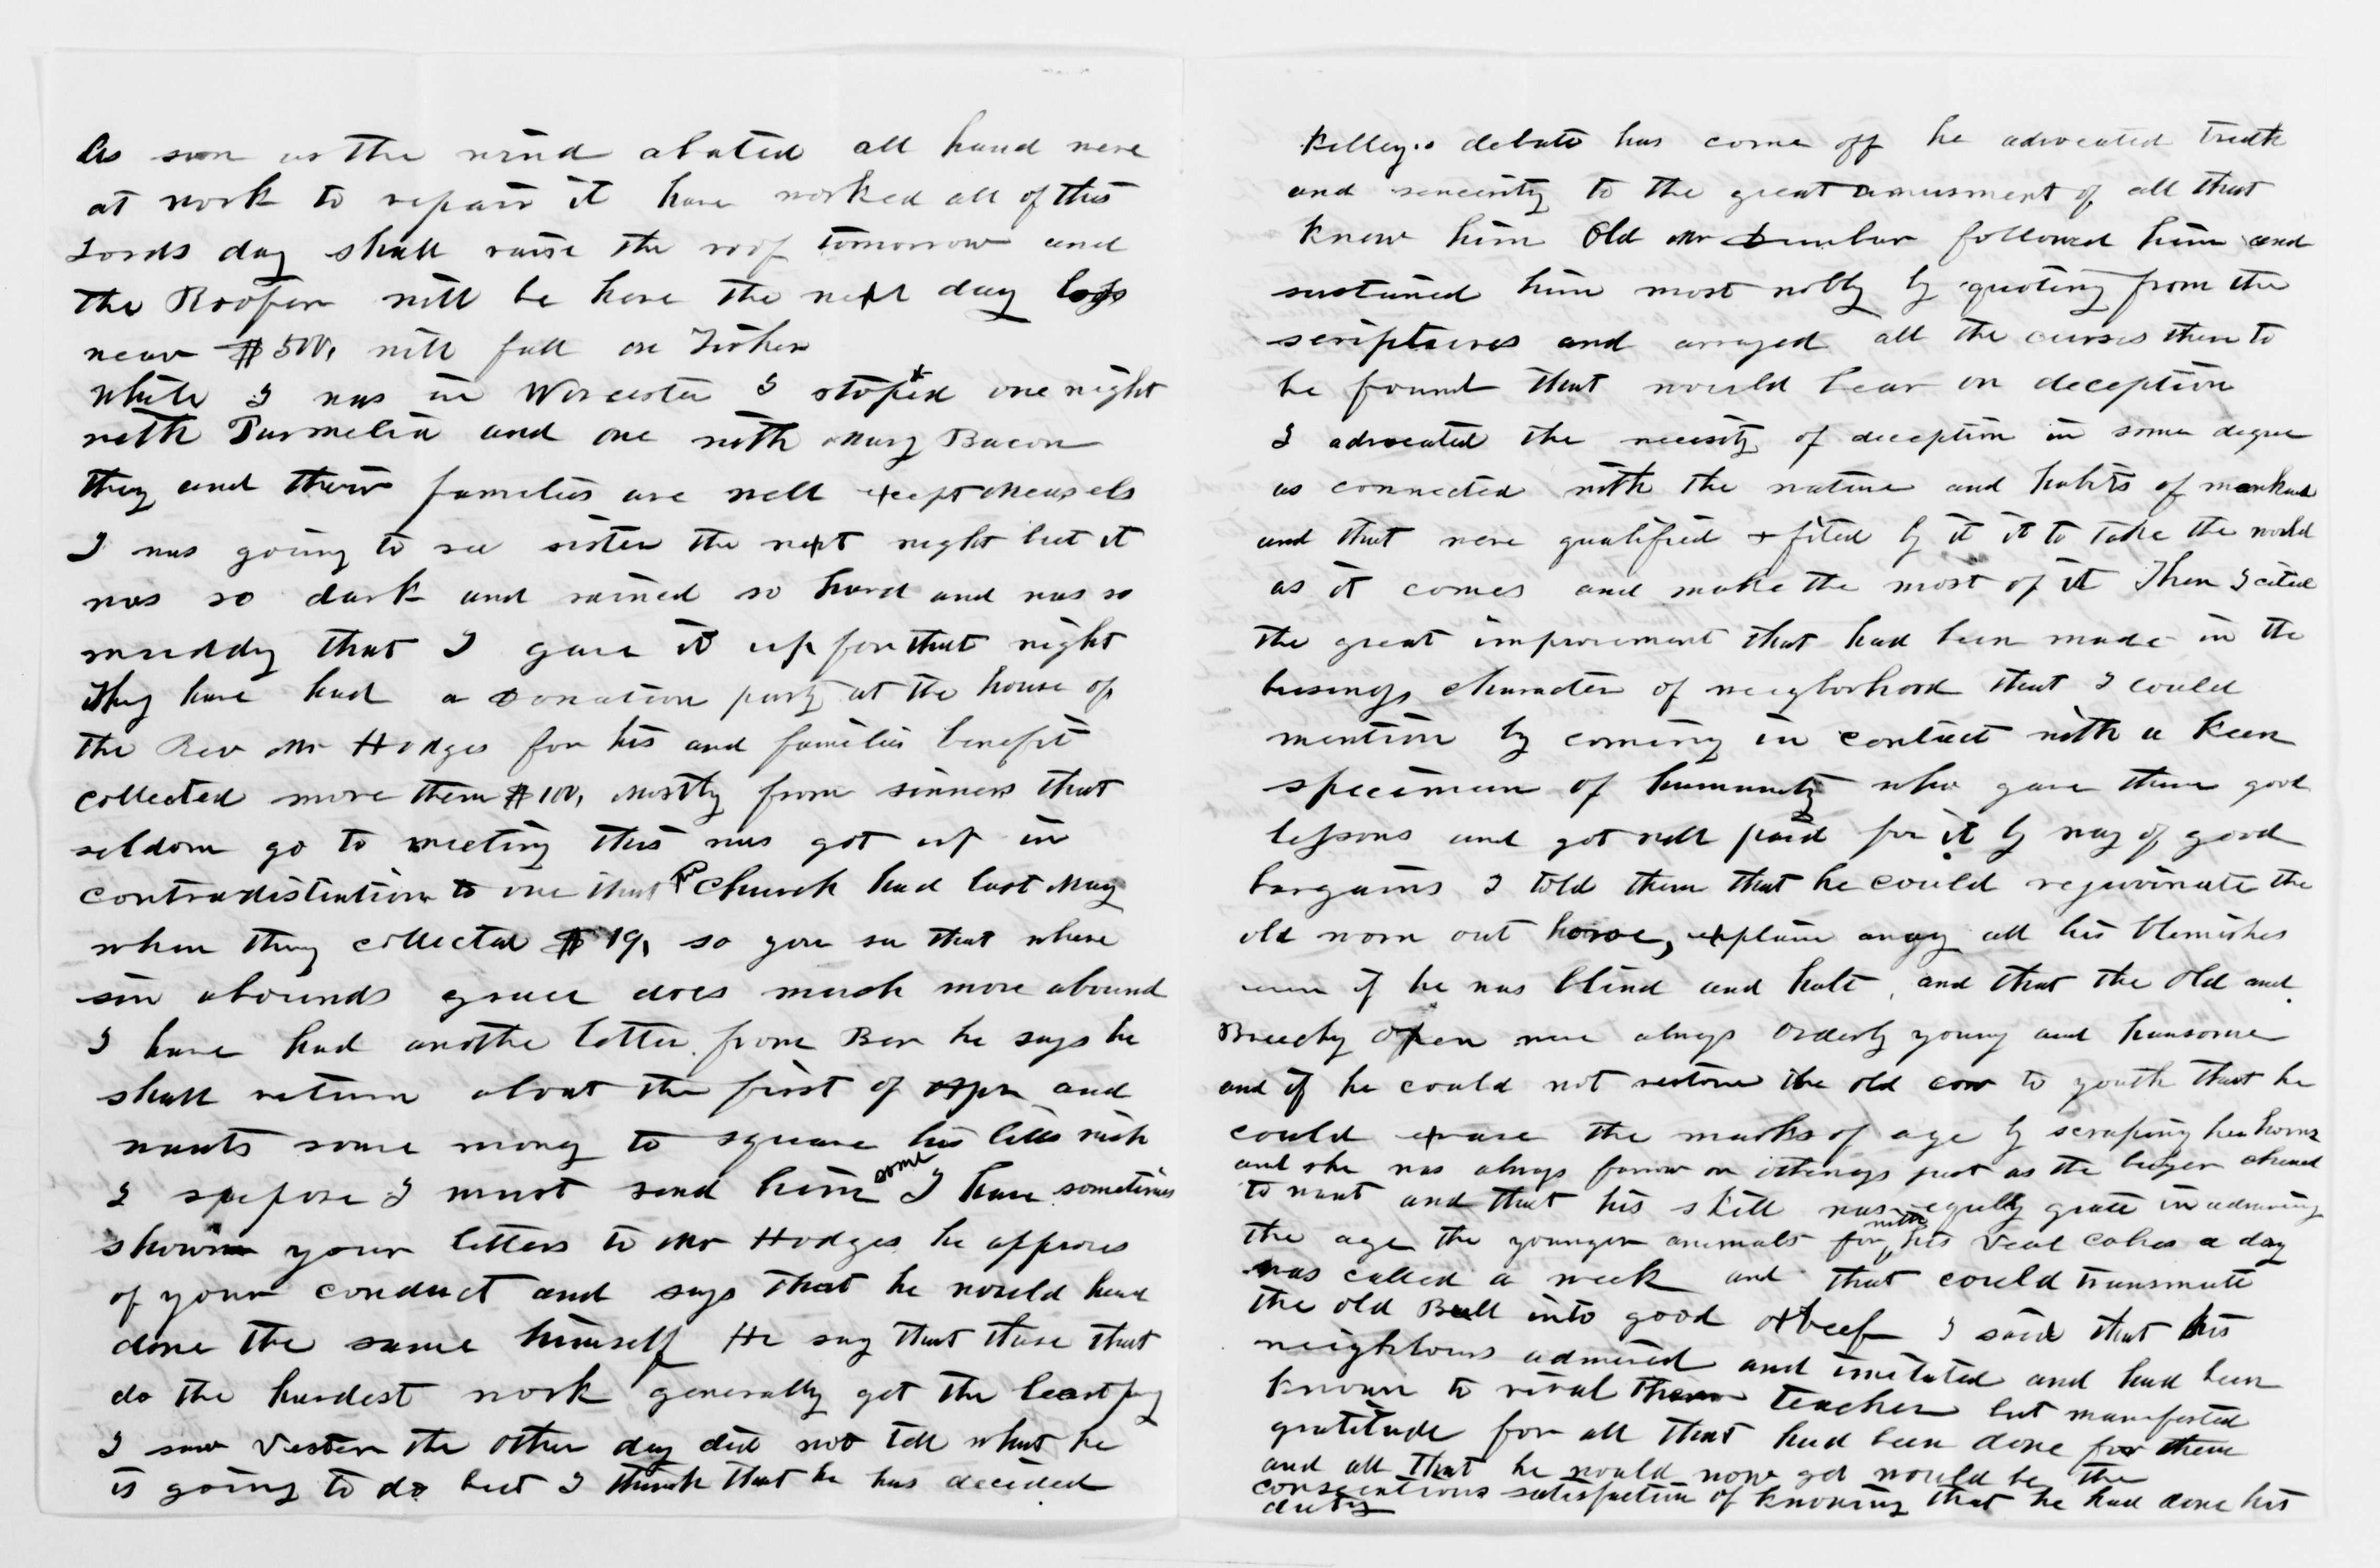 As soon as the wind abated all hand were
at work to repair it have worked all of this
Lords day shall raise the roof tomorrow and
the Roofer will be here the next day loss
near $500, will fall on Fisher
While I was in Worcester I stoped one night
with Parmelia and one with Mary Bacon
they and their families are well except Measels
I was going to see sister the next night but it
was so dark and rained so hard and was so
muddy that I gave it up for that night
They have had a Donation party at the house of
the Rev Mr Hodges for his and families benefit
collected more them $100, mostly from sinners that
seldom go to meeting this was got up in
contradistinction to one that the Church had last May
when they collected $19, so you see that where
sin abounds grace does much more abound
I have had anothe letter from Ben he says he
shall return about the first of Apr and
wants some mony to square his bills with
I spepose I must send him some I have sometimes
shown your letters to Mr Hodges he approves
of your conduct and says that he would have
done the same himself He say that those that
do the hardest work generally get the least pay
I saw Vester the other day did not tell what he
is going to do but I think that he has decided
Kelley's debate has come off he advocated truth
and sencerity to the great amusment of all that
know him Old Mr Dunbar followed him and
sustained him most nobly by quoting from the
scriptures and arrayed all the curses there to
be found that would bear on deception
I advocated the necessity of deception in some degree
as connected with the nature and habits of mankind
and that were qualified & fited by it it to take the world
as it comes and make the most of it Then I cited
the great improvement that had been made in the
business character of neighborhood that I could
mention by coming in contact with a keen
specimen of humanity who gave them good
lessons and got well paid for it by way of good
bargains I told them that he could rejuvinate the
old worn out horse, explain away all his blemishes
even if he was blind and halt, and that the old and
Breechy Oxen were always Orderly young and hansome
and if he could not restore the old cow to youth that he
could erase the marks of age by scraping her horns
and she was always farrow or otherways just as the buyer chused
to want and that his skill was eqully grate in advancing
the age the younger animals for with his Veal Calves a day
was called a week and that could transmute
the old Bull into good Oxbeef I said that his
neighbours admired and imitated and had been
known to rival their teacher but manifested
gratitude for all that had been done for them
and all that he would now get would be the
conscientious satisfaction of knowing that he had done his
duty